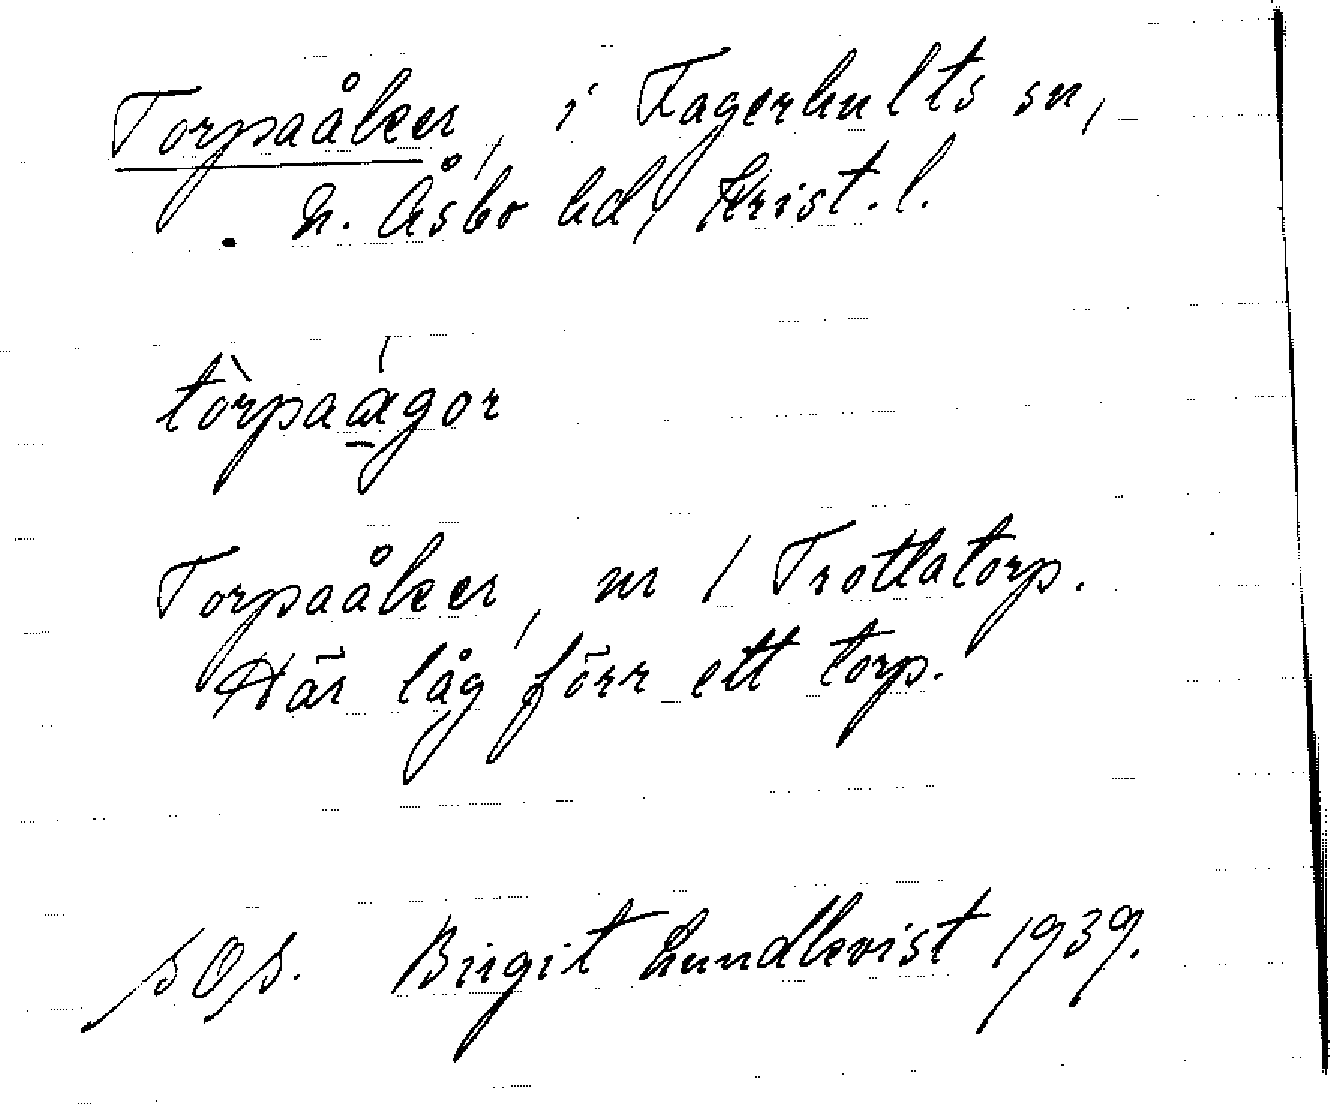 Torpaåker, i Fagerhults sn,
N. Åsbo hd, Krist. l.
tòrpaágor
Torpaåker, nr 1 Trottatorp.
Här låg förr ett torp.
sOs. Birgit Lundkvist 1939.